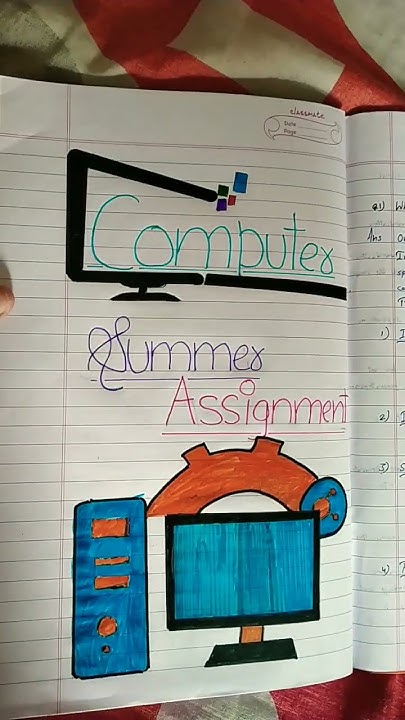 classmate
Date
Page
Computer
Summer
Assignment
Q1)
Ans
1)
2)
3)
4)